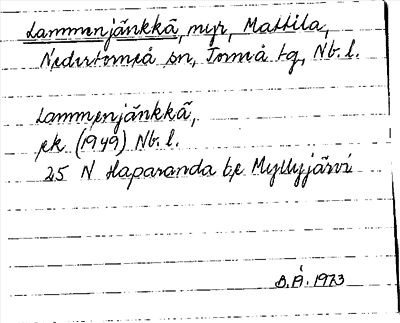 Lammenjänkkä, myr, Mattila,
Nedertorneå sn, Torneå tg, Nb. l.
Lammenjänkkä,
ek (1949) Nb. l.
25 N Haparanda be Myllyjärvi
B.Å. 1973